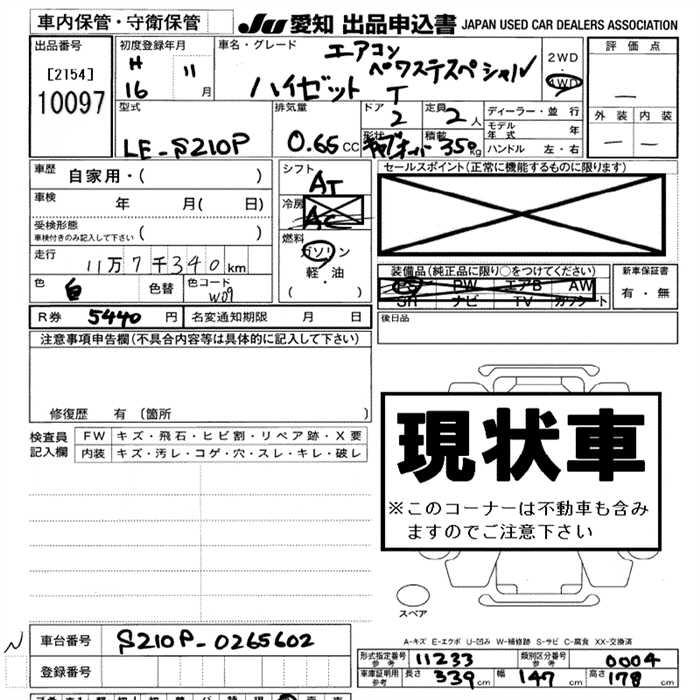 車内保管・守衛保管
JU 愛知 出品申込書 JAPAN USED CAR DEALERS ASSOCIATION
出品番号
[2154]
10097
初度登録年月
H
16 11 月
車名・グレード
エアコン
パワステスペシャル
ハイゼット T
2WD
・
4WD
評価点
—
外装 内装
— —
型式
LE-S210P
排気量
0.66 cc
ドア
2
定員
2 人
形状
キャブオーバー
積載
350 kg
ディーラー・並行
モデル年式 年
ハンドル 左・右
車歴 自家用・( )
車検 年 月( 日)
受検形態
車検付きのみ記入して下さい ( )
走行 11万7千340km
色 白 色替 色コード W09
シフト
AT
冷房
AC
燃料
ガソリン
軽・油
( )
セールスポイント(正常に機能するものに限ります)
装備品(純正品に限り○をつけてください)
PS PW エアB AW
SR ナビ TV カワシート
新車保証書
有・無
R券 5440 円 名変通知期限 月 日
後日品
注意事項申告欄(不具合内容等は具体的に記入して下さい)
修復歴 有 (箇所 )
検査員
記入欄
FW キズ・飛石・ヒビ割・リペア跡・X要
内装 キズ・汚レ・コゲ・穴・スレ・キレ・破レ
現状車
※このコーナーは不動車も含み
ますのでご注意下さい
スペア
A-キズ E-エクボ U-凹み W-補修跡 S-サビ C-腐食 XX-交換済
N
車台番号 S210P-0265602
登録番号
形式指定番号
参考
11233
類別区分番号
参考
0004
車庫証明用
参考
長さ 339 cm 幅 147 cm 高さ 178 cm